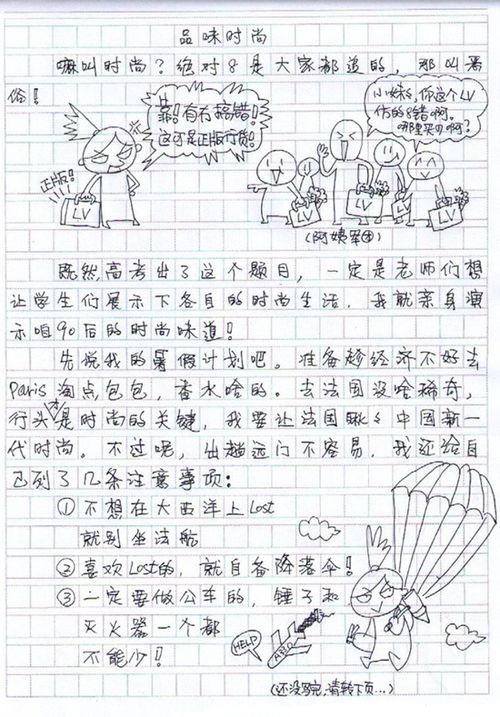 品味时尚
嘛叫时尚？绝对8是大家都追的，那叫署
俗！
靠！有冇搞错！
这可是正版行货！
正版！
LV
小妹妹，你这个LV
仿的8错啊。
哪里买的啊？
LV
LV
LV
LV
（阿姨军团）
既然高考出了这个题目，一定是老师们想
让学生们展示下各自的时尚生活，我就亲身演
示咱90后的时尚味道！
先说我的暑假计划吧。准备趁经济不好去
Paris淘点包包，香水啥的。去法国没啥稀奇，
行头才是时尚的关键，我要让法国瞅瞅中国新一
代时尚。不过呢，出趟远门不容易，我还给自
己列了几条注意事项：
①不想在大西洋上Lost
就别坐法航
②喜欢Lost的，就自备降落伞！
③一定要做公车的，锤子和
灭火器一个都
不能少！
HELP
A330
（还没完，请转下页...）